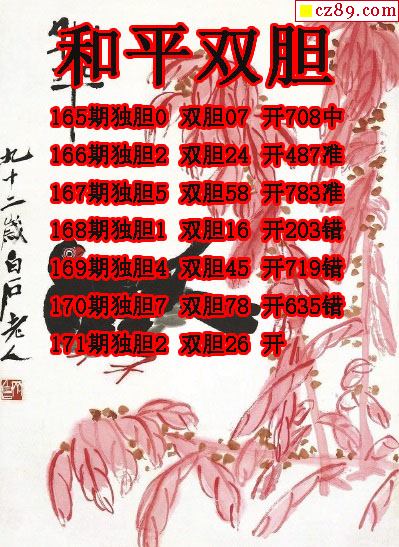 cz89.com
和平双胆
165期独胆0 双胆07 开708中
166期独胆2 双胆24 开487准
167期独胆5 双胆58 开783准
168期独胆1 双胆16 开203错
169期独胆4 双胆45 开719错
170期独胆7 双胆78 开635错
171期独胆2 双胆26 开
九十二岁白石老人